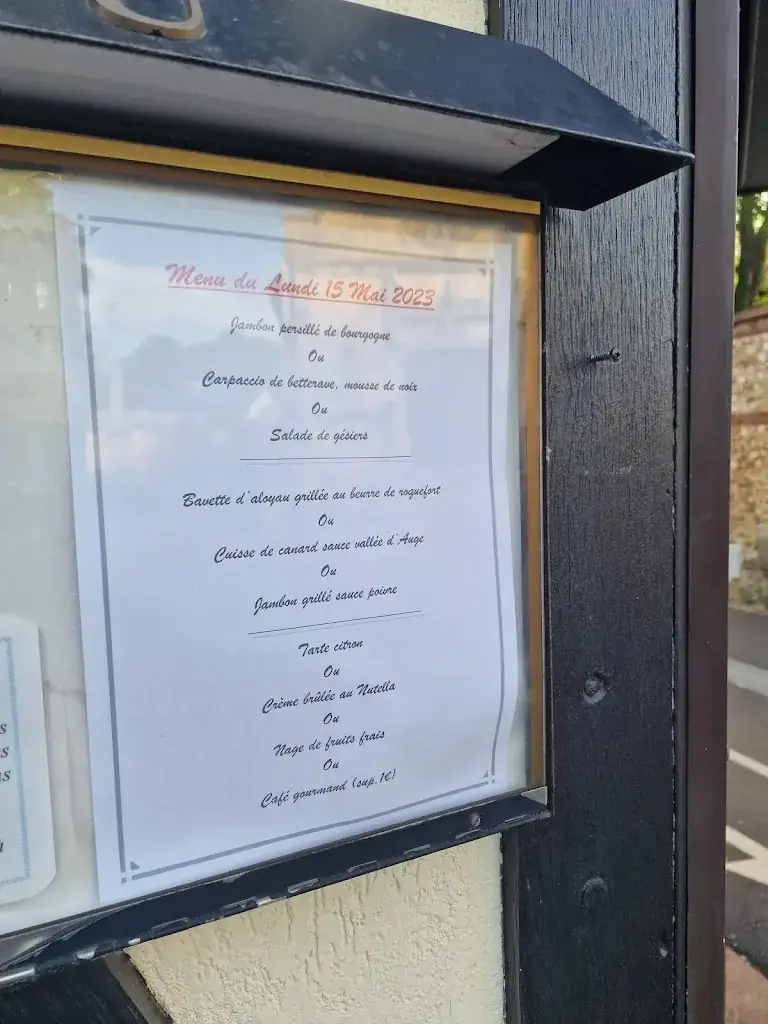 Menu du Lundi 15 Mai 2023
Jambon persillé de bourgogne
Ou
Carpaccio de betterave, mousse de noix
Ou
Salade de gésiers
Bavette d'aloyau grillée au beurre de roquefort
Ou
Cuisse de canard sauce vallée d'Auge
Ou
Jambon grillé sauce poivre
Tarte citron
Ou
Crème brûlée au Nutella
Ou
Nage de fruits frais
Ou
Café gourmand (sup.1€)